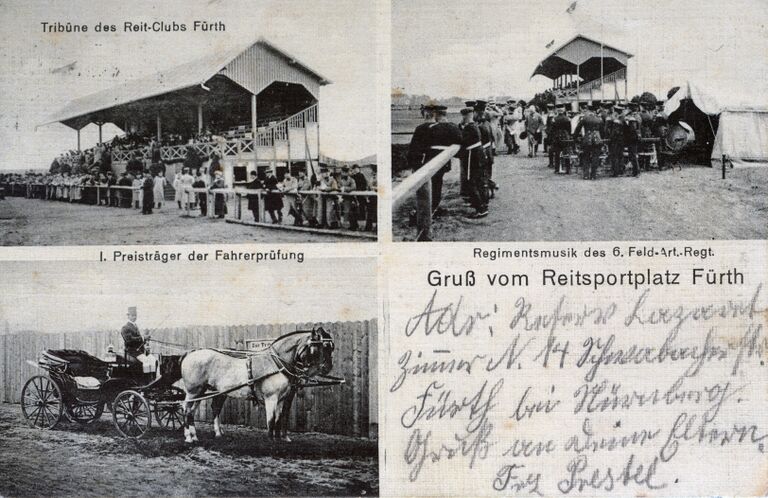 Tribüne des Reit-Clubs Fürth
I. Preisträger der Fahrerprüfung
Regimentsmusik des 6. Feld-Art.-Regt.
Gruß vom Reitsportplatz Fürth
Adr: Reserv Lazaret
Zimmer N. 14 Schwabacherstr.
Fürth bei Nürnberg.
Gruß an deine Eltern.
Prestel.